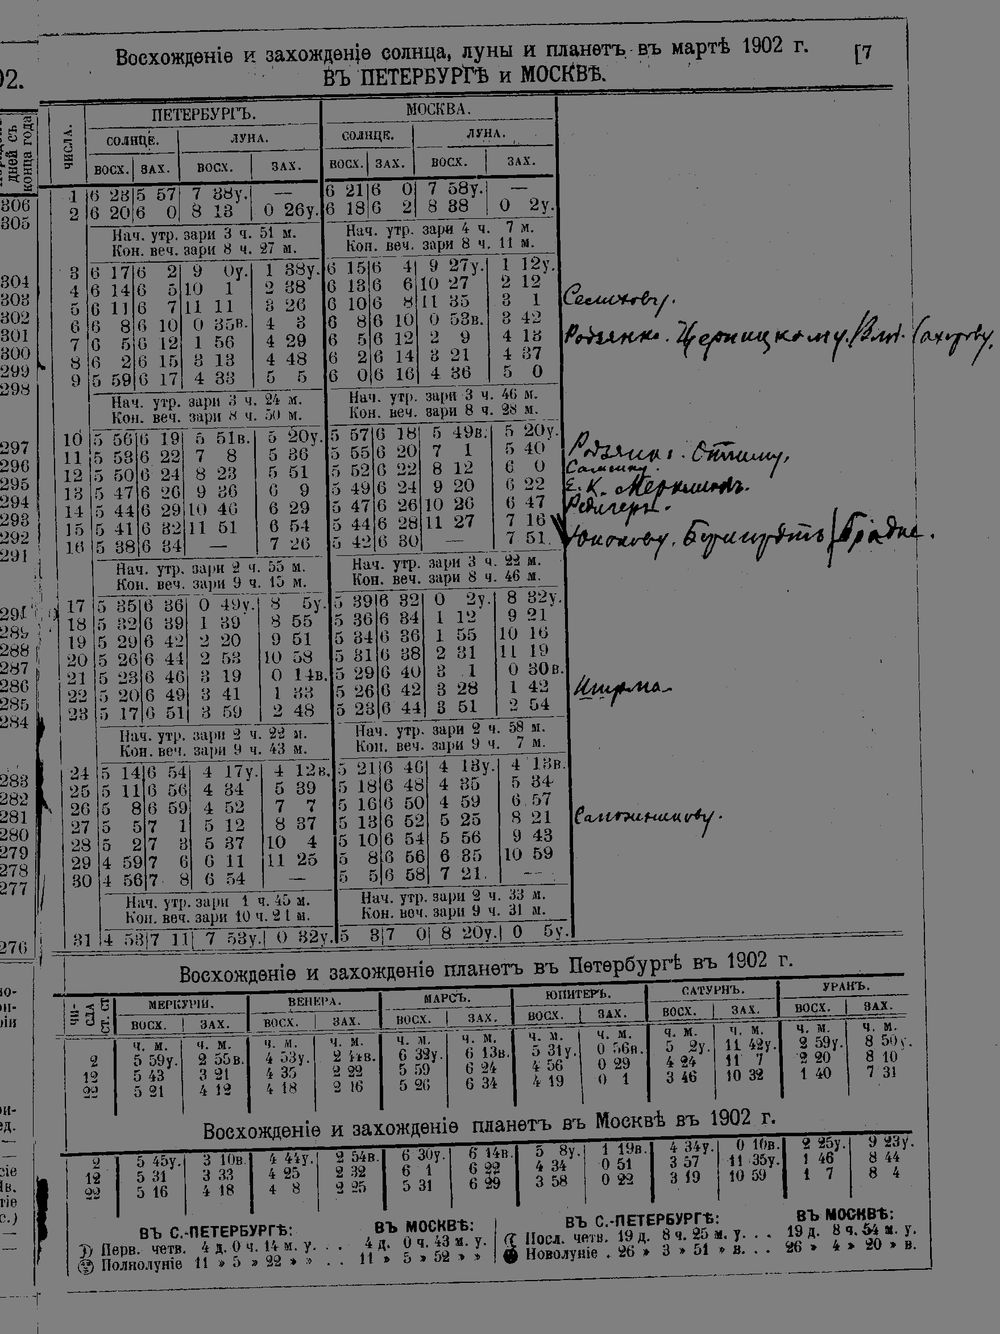 Восхожденіе и захожденіе солнца, луны и планетъ въ мартѣ 1902 г. [7
ВЪ ПЕТЕРБУРГѢ и МОСКВѢ.
ЧИСЛА. ПЕТЕРБУРГЪ. МОСКВА.
СОЛНЦЕ. ЛУНА. СОЛНЦЕ. ЛУНА.
ВОСХ. ЗАХ. ВОСХ. ЗАХ. ВОСХ. ЗАХ. ВОСХ. ЗАХ.
1 6 23 5 57 7 38у. — 6 21 6 0 7 58у. —
2 6 20 6 0 8 13 0 26у. 6 18 6 2 8 38 0 2у.
Нач. утр. зари 3 ч. 51 м. Нач. утр. зари 4 ч. 7 м.
Кон. веч. зари 8 ч. 27 м. Кон. веч. зари 8 ч. 11 м.
3 6 17 6 2 9 0у. 1 38у. 6 15 6 4 9 27у. 1 12у.
4 6 14 6 5 10 1 2 38 6 13 6 6 10 27 2 12
5 6 11 6 7 11 11 3 26 6 10 6 8 11 35 3 1 Селихову.
6 6 8 6 10 0 35в. 4 3 6 8 6 10 0 53в. 3 42
7 6 5 6 12 1 56 4 29 6 5 6 12 2 9 4 13 Родзянко. Церницкому.
8 6 2 6 15 3 13 4 48 6 2 6 14 3 21 4 37
9 5 59 6 17 4 33 5 5 6 0 6 16 4 36 5 0
Нач. утр. зари 3 ч. 24 м. Нач. утр. зари 3 ч. 46 м.
Кон. веч. зари 8 ч. 50 м. Кон. веч. зари 8 ч. 28 м.
10 5 56 6 19 5 51в. 5 20у. 5 57 6 18 5 49в. 5 20у.
11 5 53 6 22 7 8 5 36 5 55 6 20 7 1 5 40 Родзянко.
12 5 50 6 24 8 23 5 51 5 52 6 22 8 12 6 0
13 5 47 6 26 9 36 6 9 5 49 6 24 9 20 6 22 Е. К.
14 5 44 6 29 10 46 6 29 5 47 6 26 10 26 6 47 Редигеръ.
15 5 41 6 32 11 51 6 54 5 44 6 28 11 27 7 16
16 5 38 6 34 — 7 26 5 42 6 30 — 7 51
Нач. утр. зари 2 ч. 55 м. Нач. утр. зари 3 ч. 22 м.
Кон. веч. зари 9 ч. 15 м. Кон. веч. зари 8 ч. 46 м.
17 5 35 6 36 0 49у. 8 5у. 5 39 6 32 0 2у. 8 32у.
18 5 32 6 39 1 39 8 55 5 36 6 34 1 12 9 21
19 5 29 6 42 2 20 9 51 5 34 6 36 1 55 10 16
20 5 26 6 44 2 53 10 58 5 31 6 38 2 31 11 19
21 5 23 6 46 3 19 0 14в. 5 29 6 40 3 1 0 30в.
22 5 20 6 49 3 41 1 33 5 26 6 42 3 28 1 42
23 5 17 6 51 3 59 2 48 5 23 6 44 3 51 2 54
Нач. утр. зари 2 ч. 22 м. Нач. утр. зари 2 ч. 58 м.
Кон. веч. зари 9 ч. 43 м. Кон. веч. зари 9 ч. 7 м.
24 5 14 6 54 4 17у. 4 12в. 5 21 6 46 4 13у. 4 13в.
25 5 11 6 56 4 34 5 39 5 18 6 48 4 35 5 34
26 5 8 6 59 4 52 7 7 5 16 6 50 4 59 6 57
27 5 5 7 1 5 12 8 37 5 13 6 52 5 25 8 21 Сапожникову.
28 5 2 7 3 5 37 10 4 5 10 6 54 5 56 9 43
29 4 59 7 6 6 11 11 25 5 8 6 56 6 35 10 59
30 4 56 7 8 6 54 — 5 5 6 58 7 21 —
Нач. утр. зари 1 ч. 45 м. Нач. утр. зари 2 ч. 33 м.
Кон. веч. зари 10 ч. 21 м. Кон. веч. зари 9 ч. 31 м.
31 4 53 7 11 7 53у. 0 32у. 5 3 7 0 8 20у. 0 5у.
Восхожденіе и захожденіе планетъ въ Петербургѣ въ 1902 г.
ЧИСЛА СТ. СТ МЕРКУРІЙ. ВЕНЕРА. МАРСЪ. ЮПИТЕРЪ. САТУРНЪ. УРАНЪ.
ВОСХ. ЗАХ. ВОСХ. ЗАХ. ВОСХ. ЗАХ. ВОСХ. ЗАХ. ВОСХ. ЗАХ. ВОСХ. ЗАХ.
ч. м. ч. м. ч. м. ч. м. ч. м. ч. м. ч. м. ч. м. ч. м. ч. м. ч. м. ч. м.
2 5 59у. 2 55в. 4 53у. 2 44в. 6 32у. 6 13в. 5 31у. 0 56в. 5 2у. 11 42у. 2 59у. 8 50у.
12 5 43 3 21 4 35 2 22 5 59 6 24 4 56 0 29 4 24 11 7 2 20 8 10
22 5 21 4 12 4 18 2 16 5 26 6 34 4 19 0 1 3 46 10 32 1 40 7 31
Восхожденіе и захожденіе планетъ въ Москвѣ въ 1902 г.
2 5 45у. 3 10в. 4 44у. 2 54в. 6 30у. 6 14в. 5 8у. 1 19в. 4 34у. 0 10в. 2 25у. 9 23у.
12 5 31 3 33 4 25 2 32 6 1 6 22 4 34 0 51 3 57 11 35у. 1 46 8 44
22 5 16 4 18 4 8 2 25 5 31 6 29 3 58 0 22 3 19 10 59 1 7 8 4
ВЪ С.-ПЕТЕРБУРГѢ: ВЪ МОСКВѢ: ВЪ С.-ПЕТЕРБУРГѢ: ВЪ МОСКВѢ:
Перв. четв. 4 д. 0 ч. 14 м. у. . . . 4 д. 0 ч. 43 м. у. Посл. четв. 19 д. 8 ч. 25 м. у. . . . 19 д. 8 ч. 54 м. у.
Полнолуніе 11 » 5 » 22 » » . . . 11 » 5 » 52 » » Новолуніе . 26 » 3 » 51 » в. . . . 26 » 4 » 20 » в.